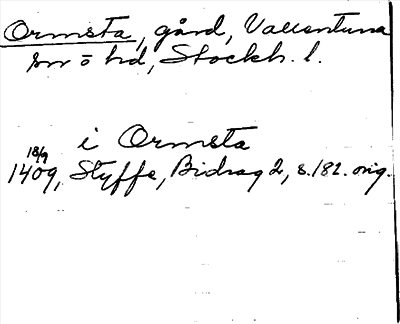 Ormsta, gård, Vallentuna
sn o hd, Stockh. l.
i Ormsta
18/9
1409, Styffe, Bidrag 2, s. 182. orig.